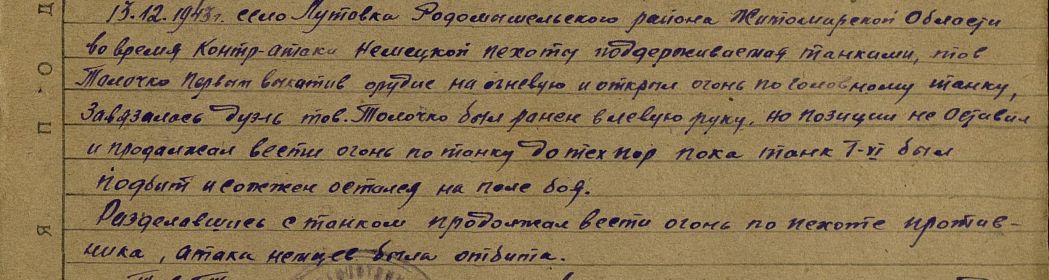 13.12.1943г. село Лутовка Радомышельского района Житомирской Области
во время Контр-атаки немецкой пехоты поддерживаемая танками, тов
Толочко первым выкатив орудие на огневую и открыл огонь по головному танку,
Завязалась дуэль тов. Толочко был ранен в левую руку, но позиции не оставил
и продолжал вести огонь по танку до тех пор пока танк Т-VI был
подбит и сожжен остался на поле боя.
Разделавшись с танком продолжал вести огонь по пехоте против-
ника, атака немцев была отбита.
Я П О Д